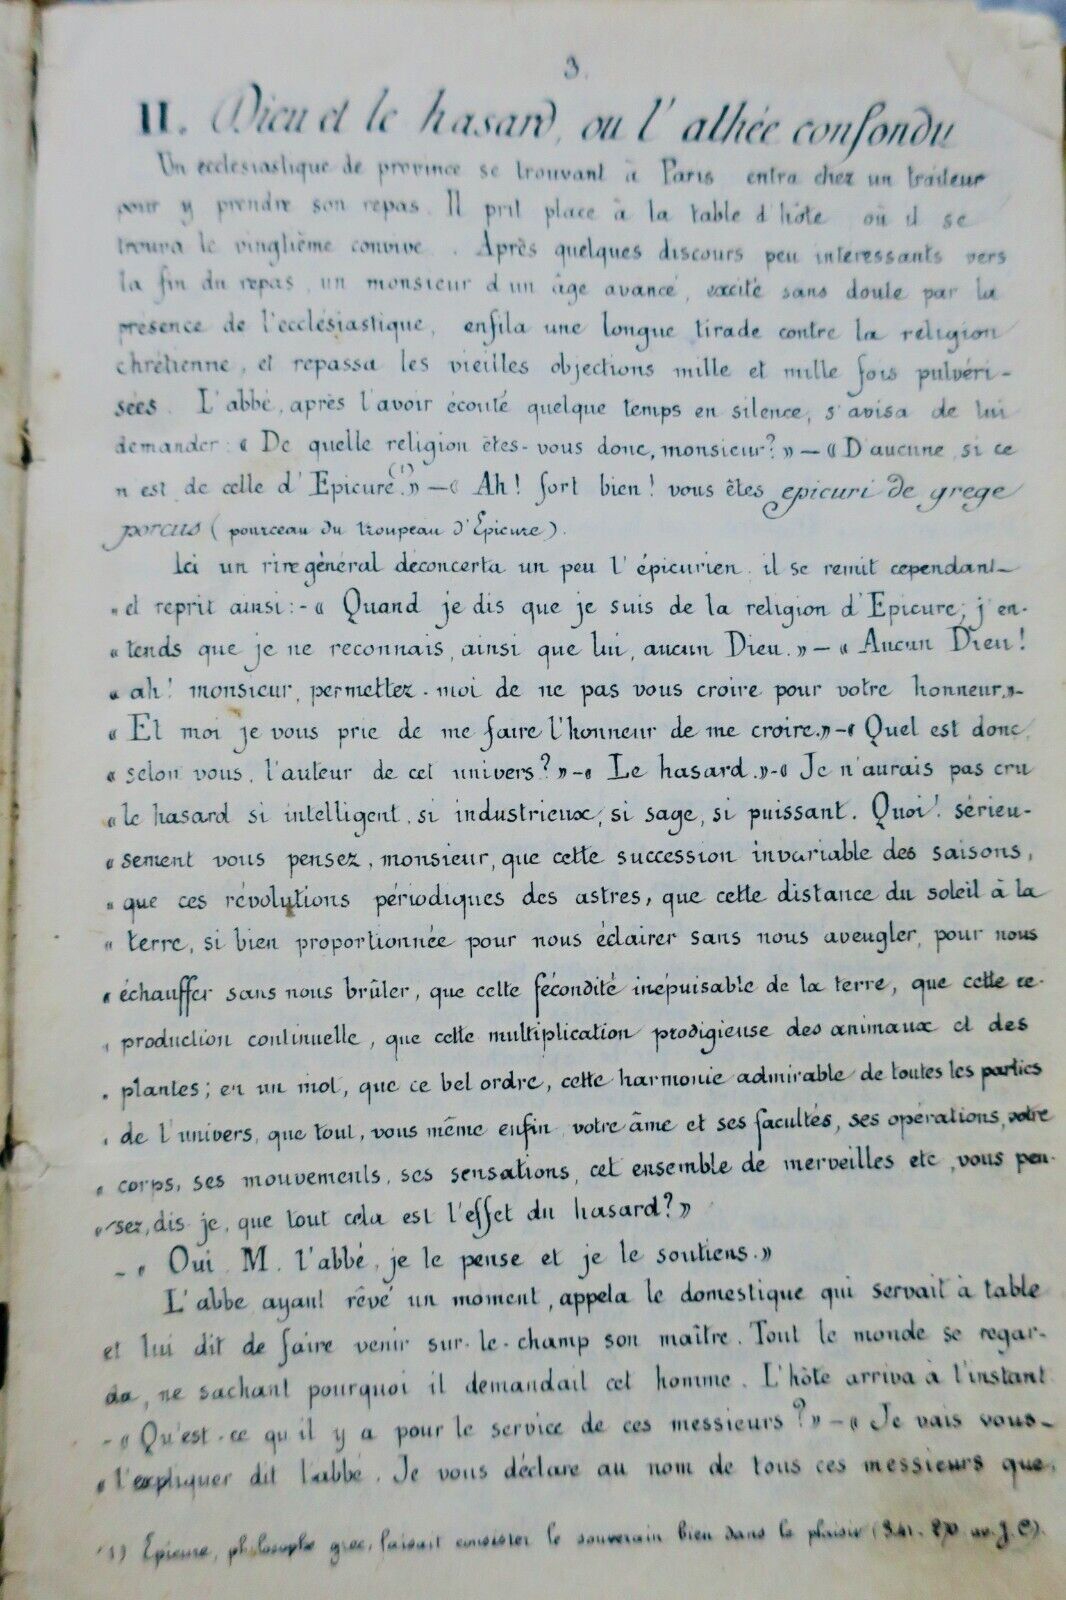 3.
II. Dieu et le hasard, ou l'athée confondu
Un ecclésiastique de province se trouvant à Paris entra chez un traiteur
pour y prendre son repas. Il prit place à la table d'hôte où il se
trouva le vingtième convive. Après quelques discours peu intéressants vers
la fin du repas, un monsieur d'un âge avancé, excité sans doute par la
présence de l'ecclésiastique, enfila une longue tirade contre la religion
chrétienne, et repassa les vieilles objections mille et mille fois pulvéri-
sées. L'abbé, après l'avoir écouté quelque temps en silence, s'avisa de lui
demander : « De quelle religion êtes-vous donc, monsieur? » — « D'aucune, si ce
n'est de celle d'Epicure.(1) » — « Ah! fort bien! vous êtes epicuri de grege
porcus (pourceau du troupeau d'Epicure).
Ici un rire général déconcerta un peu l'épicurien. il se remit cependant
" et reprit ainsi : - « Quand je dis que je suis de la religion d'Epicure, j'en-
« tends que je ne reconnais, ainsi que lui, aucun Dieu. » — « Aucun Dieu!
« ah! monsieur, permettez-moi de ne pas vous croire pour votre honneur. » -
« Et moi je vous prie de me faire l'honneur de me croire. » - « Quel est donc,
« selon vous, l'auteur de cet univers? » - « Le hasard. » - « Je n'aurais pas cru
« le hasard si intelligent, si industrieux, si sage, si puissant. Quoi! sérieu-
« sement vous pensez, monsieur, que cette succession invariable des saisons,
« que ces révolutions périodiques des astres, que cette distance du soleil à la
« terre, si bien proportionnée pour nous éclairer sans nous aveugler, pour nous
« échauffer sans nous brûler, que cette fécondité inépuisable de la terre, que cette re-
« production continuelle, que cette multiplication prodigieuse des animaux et des
« plantes; en un mot, que ce bel ordre, cette harmonie admirable de toutes les parties
« de l'univers, que tout, vous même enfin, votre âme et ses facultés, ses opérations, votre
« corps, ses mouvements, ses sensations, cet ensemble de merveilles etc, vous pen-
« sez, dis-je, que tout cela est l'effet du hasard? »
- « Oui M. l'abbé, je le pense et je le soutiens. »
L'abbé ayant rêvé un moment, appela le domestique qui servait à table
et lui dit de faire venir sur-le-champ son maître. Tout le monde se regar-
da, ne sachant pourquoi il demandait cet homme. L'hôte arriva à l'instant
- « Qu'est-ce qu'il y a pour le service de ces messieurs? » - « Je vais vous
« l'expliquer dit l'abbé. Je vous déclare au nom de tous ces messieurs que,
(1) Epicure, philosophe grec, faisait consister le souverain bien dans le plaisir (341-270 av. J.C).